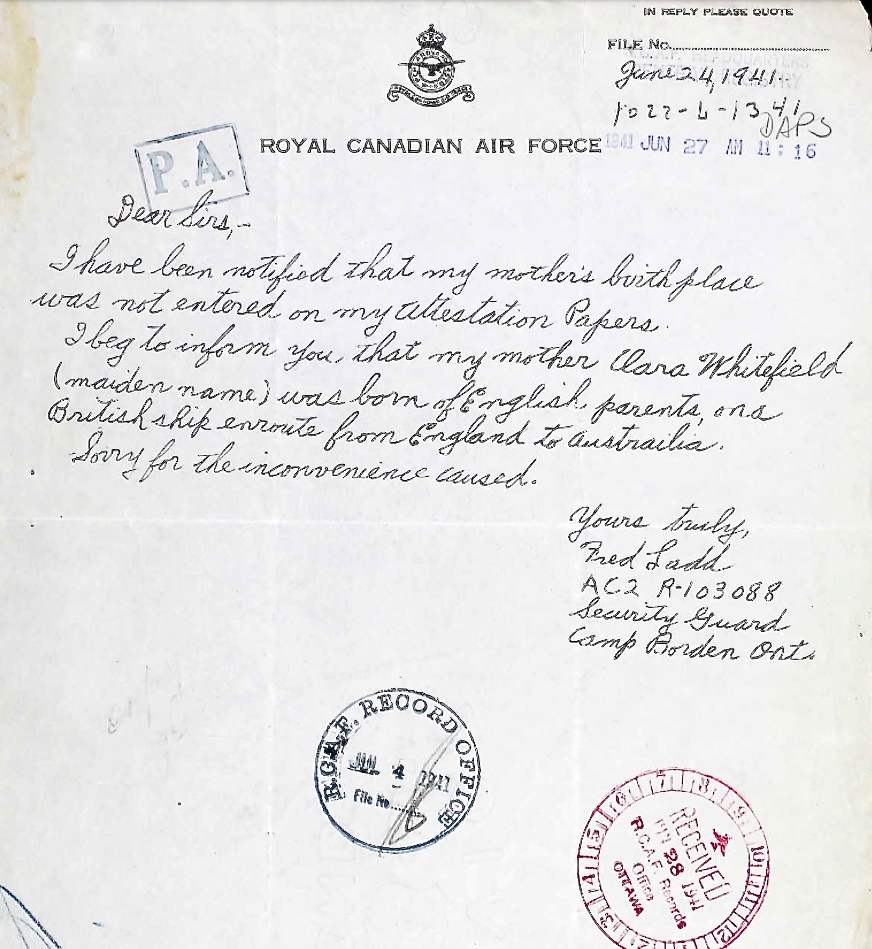 IN REPLY PLEASE QUOTE
FILE No.
R.C.A.F. HEADQUARTERS
June 24, 1941.
DAPS
ROYAL CANADIAN AIR FORCE
1941 JUN 27 AM 11:16
P.A.
Dear Sirs,-
I have been notified that my mother's birth place
was not entered on my Attestation Papers.
I beg to inform you, that my mother Clara Whitefield
(maiden name) was born of English, parents, on a
British ship enroute from England to Austrailia.
Sorry for the inconvenience caused.
Yours truly,
Fred Ladd
AC2 R-103088
Security Guard
Camp Borden Ont.
R.C.A.F. RECORD OFFICE
4 1941
File No.
RECEIVED
28 1941
R.C.A.F. Records
Office
OTTAWA
3 4 5 6 7 8 9 10 12